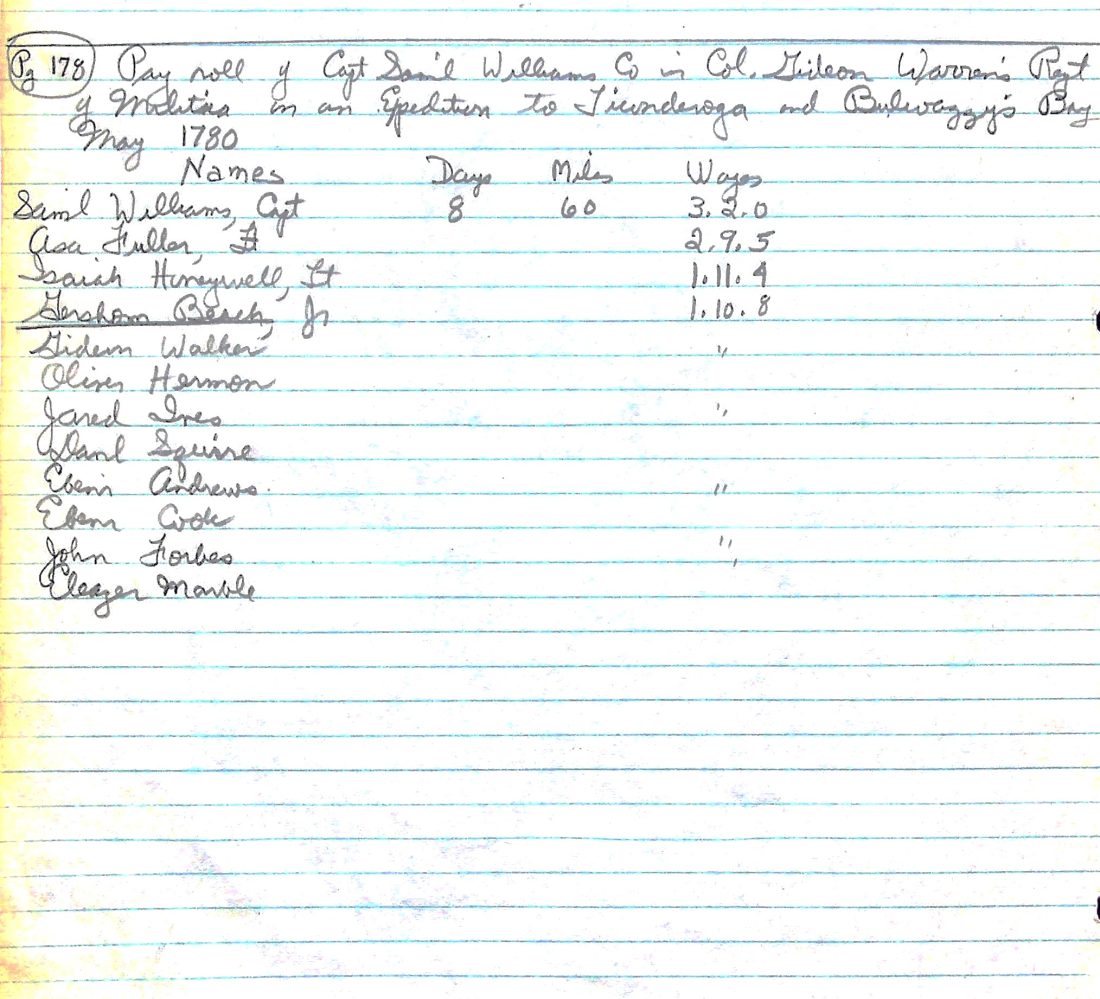 Pg 178 Pay roll of Capt Saml Williams Co in Col. Gideon Warren's Regt
of Militia in an Expedition to Ticonderoga and Bulwaggy's Bay
May 1780
Names Days Miles Wages
Saml Williams, Capt 8 60 3.2.0
Asa Fuller, Lt 2.9.5
Isaiah Honeywell, Lt 1.11.4
Gershom Beach, Jr 1.10.8
Gideon Walker "
Oliver Hermon
Jared Ives "
Danl Squire
Ebenr Andrews "
Ebenr Cook
John Forbes "
Eleazer Marble